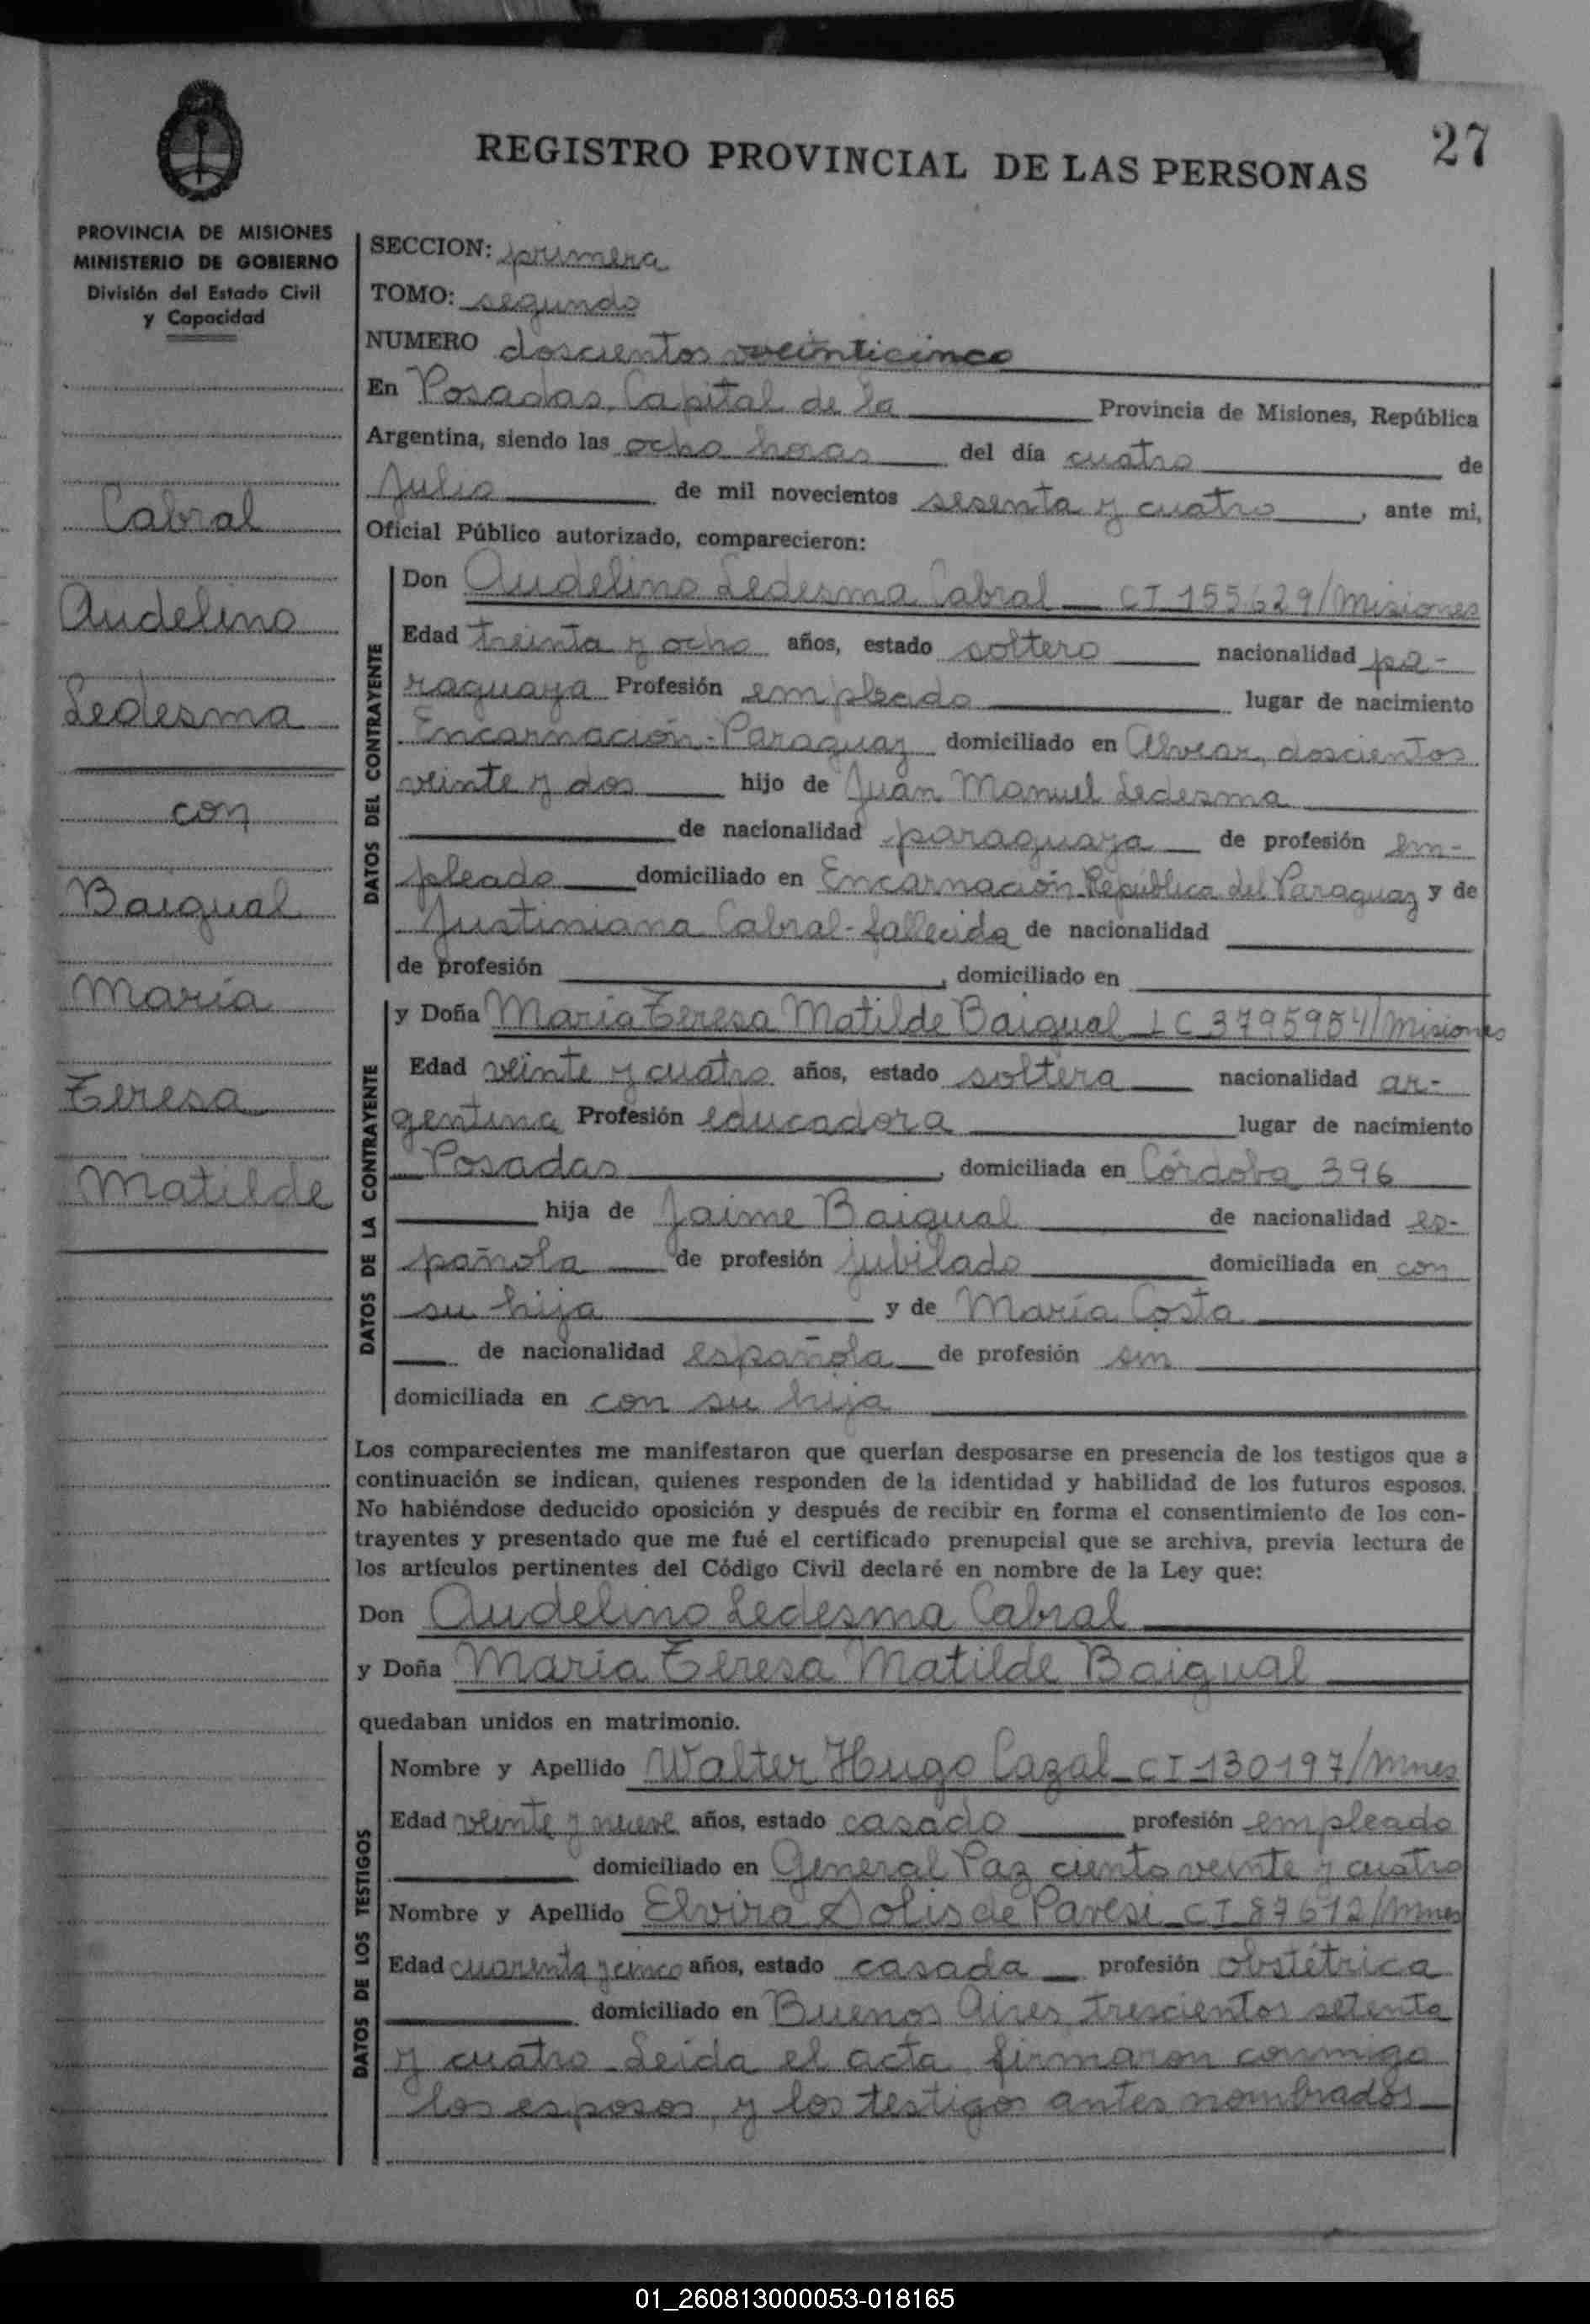 27
REGISTRO PROVINCIAL DE LAS PERSONAS
PROVINCIA DE MISIONES
MINISTERIO DE GOBIERNO
División del Estado Civil
y Capacidad
Cabral
Audelino
Ledesma
con
Baigual
María
Teresa
Matilde
SECCION: primera
TOMO: segundo
NUMERO doscientos veinticinco
En Posadas, Capital de la Provincia de Misiones, República
Argentina, siendo las ocho horas del día cuatro de
Julio de mil novecientos sesenta y cuatro, ante mi,
Oficial Público autorizado, comparecieron:
DATOS DEL CONTRAYENTE
Don Audelino Ledesma Cabral CI 155629/Misiones
Edad treinta y ocho años, estado soltero nacionalidad pa-
raguaya Profesión empleado lugar de nacimiento
Encarnación-Paraguay domiciliado en Alvear, doscientos
veinte y dos hijo de Juan Manuel Ledesma
de nacionalidad paraguaya de profesión em-
pleado domiciliado en Encarnación, República del Paraguay y de
Justiniana Cabral-fallecida de nacionalidad
de profesión , domiciliado en
DATOS DE LA CONTRAYENTE
y Doña María Teresa Matilde Baigual LC 3795954/Misiones
Edad veinte y cuatro años, estado soltera nacionalidad ar-
gentina Profesión educadora lugar de nacimiento
Posadas, domiciliada en Córdoba 396
hija de Jaime Baigual de nacionalidad es-
pañola de profesión jubilado domiciliada en con
su hija y de María Costa
de nacionalidad española de profesión sin
domiciliada en con su hija
Los comparecientes me manifestaron que querían desposarse en presencia de los testigos que a
continuación se indican, quienes responden de la identidad y habilidad de los futuros esposos.
No habiéndose deducido oposición y después de recibir en forma el consentimiento de los con-
trayentes y presentado que me fué el certificado prenupcial que se archiva, previa lectura de
los artículos pertinentes del Código Civil declaré en nombre de la Ley que:
Don Audelino Ledesma Cabral
y Doña María Teresa Matilde Baigual
quedaban unidos en matrimonio.
DATOS DE LOS TESTIGOS
Nombre y Apellido Walter Hugo Cazal CI 130197/Mnes
Edad veinte y nueve años, estado casado profesión empleado
domiciliado en General Paz ciento veinte y cuatro
Nombre y Apellido Elvira Solis de Paresi CI 87612/Mnes
Edad cuarenta y cinco años, estado casada profesión obstétrica
domiciliado en Buenos Aires trescientos setenta
y cuatro. Leida el acta, firmaron conmigo
los esposos, y los testigos antes nombrados
01_260813000053-018165